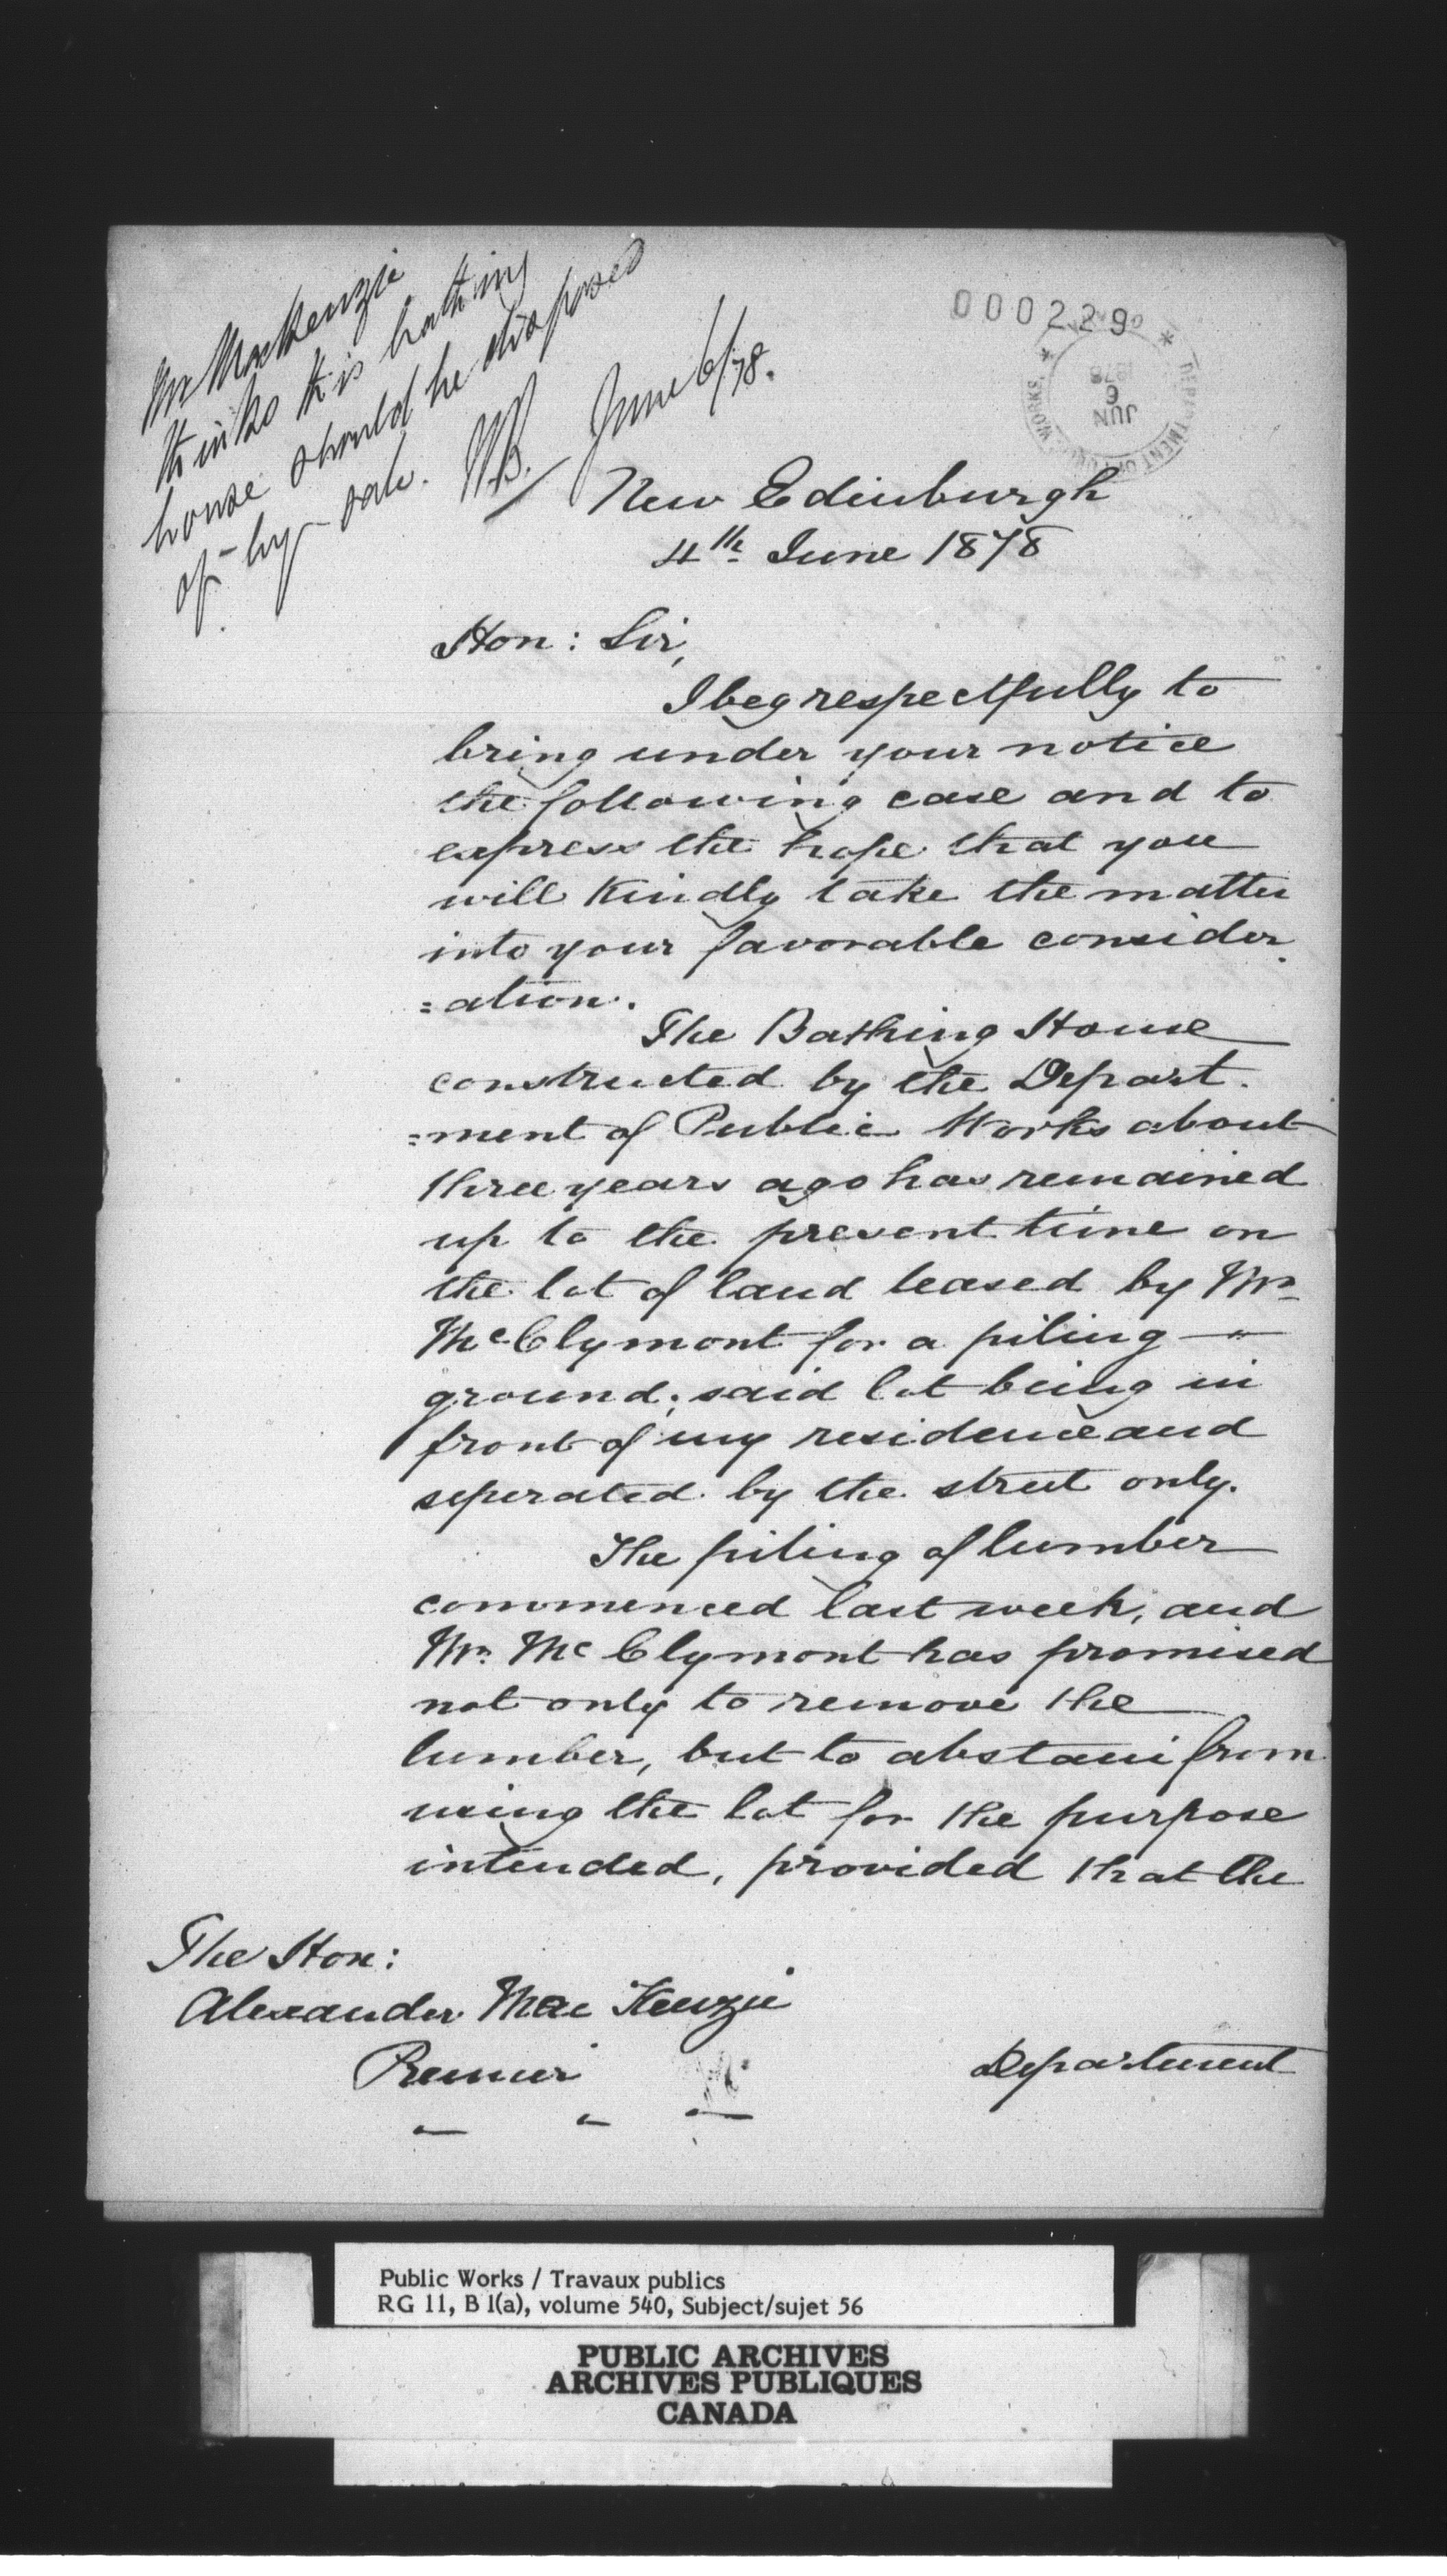 Mr Mackenzie
thinks this bathing
house should be disposed
of by sale. June 6/78.
000229
DEPARTMENT OF PUBLIC WORKS.
JUN
6
1878
New Edinburgh
4th June 1878
Hon: Sir,
I beg respectfully to
bring under your notice
the following case and to
express the hope that you
will kindly take the matter
into your favorable consider
=ation.
The Bathing House
constructed by the Depart.
=ment of Public Works about
three years ago has remained
up to the present time on
the lot of land leased by Mr.
McClymont for a piling
ground; said lot being in
front of my residence and
seperated by the street only.
The piling of lumber
commenced last week, and
Mr. McClymont has promised
not only to remove the
lumber, but to abstain from
using the lot for the purpose
intended, provided that the
The Hon:
Alexander MacKenzie
Premier
Department
Public Works / Travaux publics
RG 11, B 1(a), volume 540, Subject/sujet 56
PUBLIC ARCHIVES
ARCHIVES PUBLIQUES
CANADA